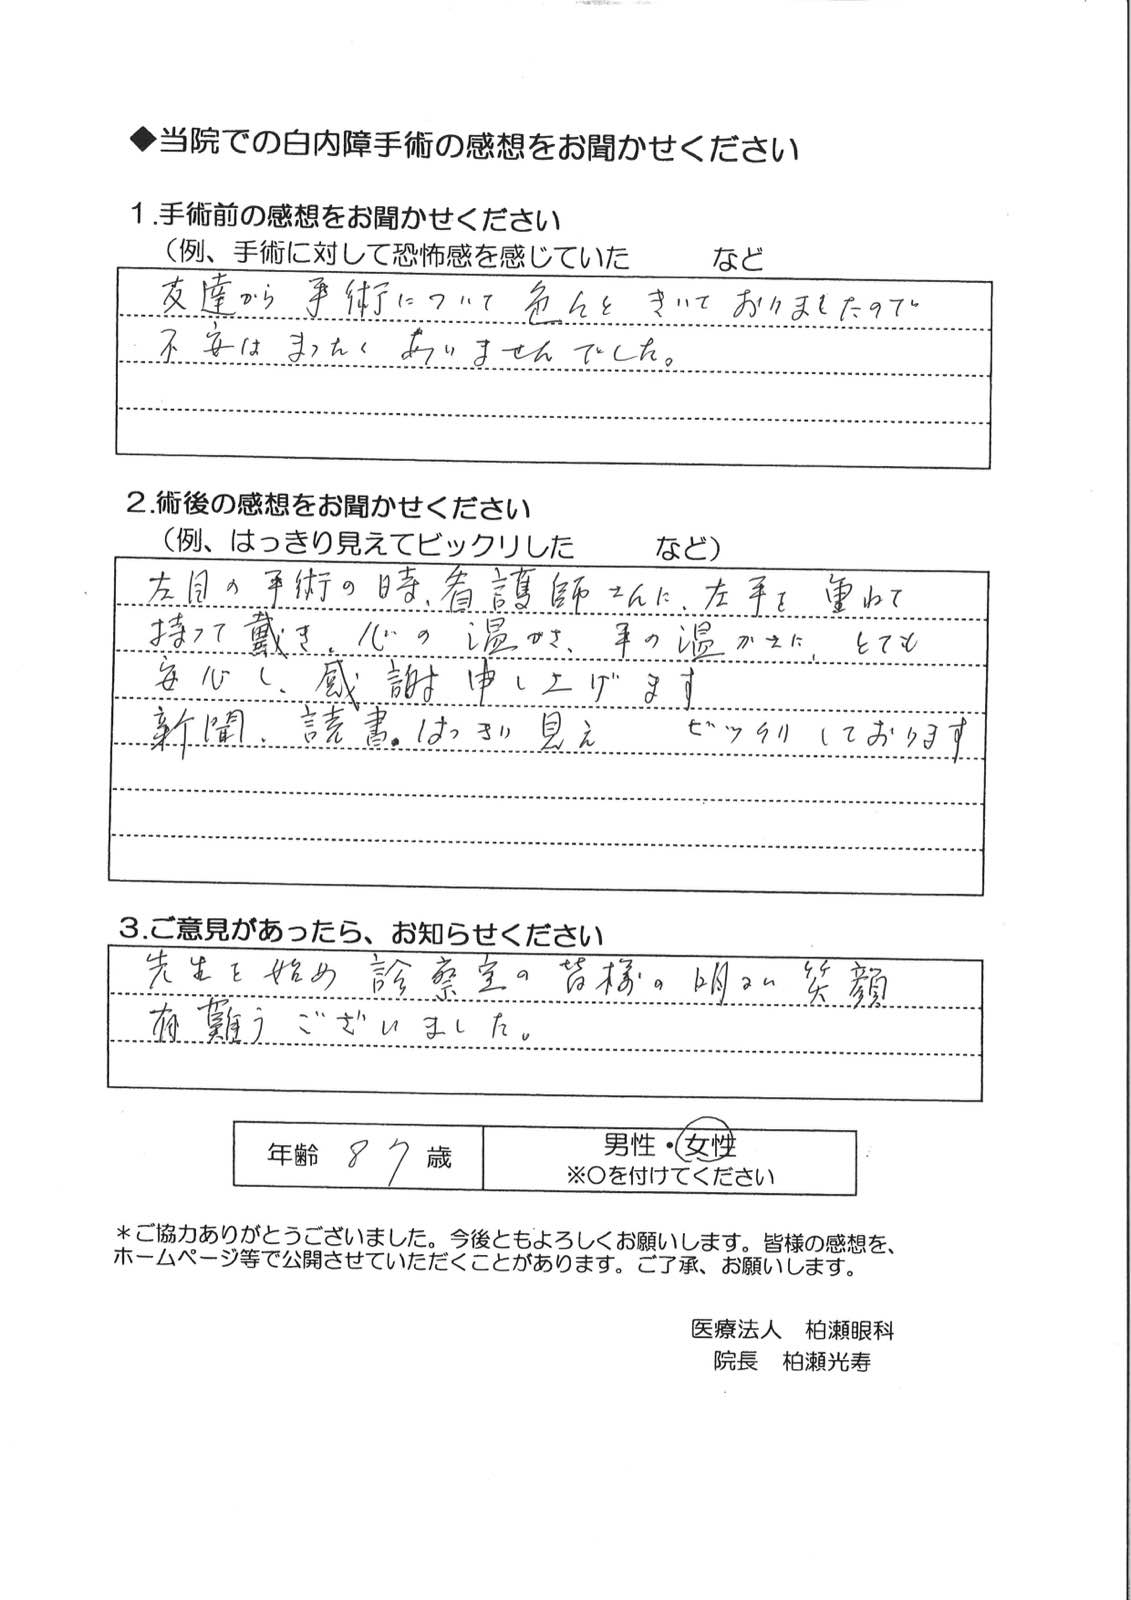 ◆当院での白内障手術の感想をお聞かせください
１.手術前の感想をお聞かせください
（例、手術に対して恐怖感を感じていた　　　など
友達から手術について色んときいておりましたので
不安はまったくありませんでした。
２.術後の感想をお聞かせください
（例、はっきり見えてビックリした　　　など）
左目の手術の時、看護師さんに、左手を重ねて
持って戴き、心の温かさ、手の温かさに、とても
安心し、感謝申し上げます
新聞、読書。はっきり見え　ビックリしております
３.ご意見があったら、お知らせください
先生を始め診察室の皆様の明るい笑顔
有難うございました。
年齢 87 歳
男性・女性
※○を付けてください
＊ご協力ありがとうございました。今後ともよろしくお願いします。皆様の感想を、
ホームページ等で公開させていただくことがあります。ご了承、お願いします。
医療法人　柏瀬眼科
院長　柏瀬光寿